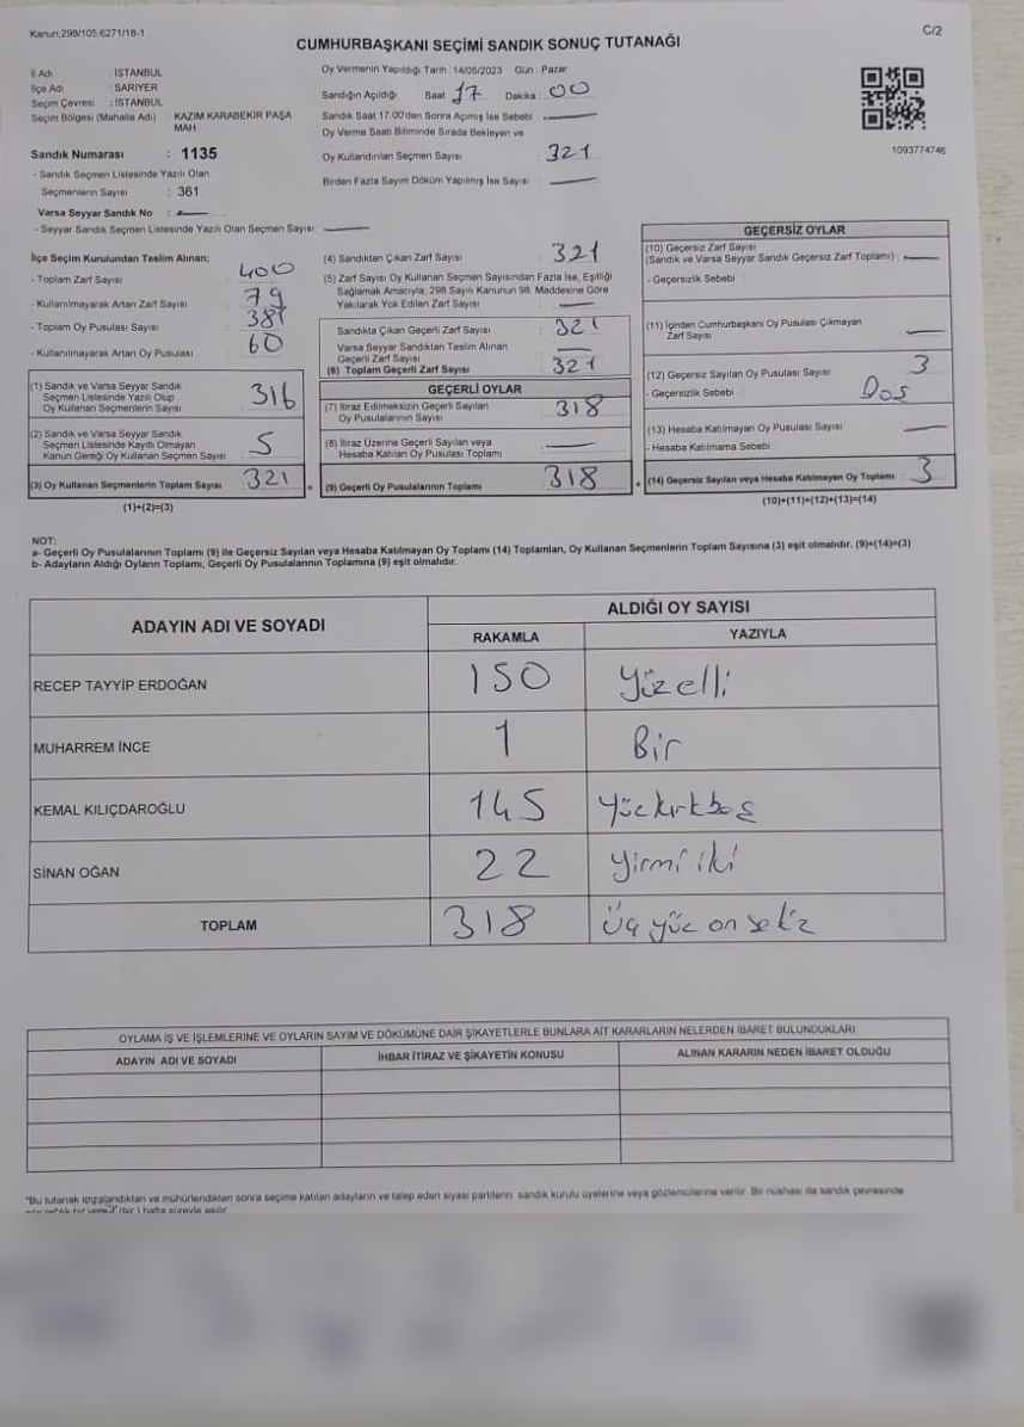 Kanun;298/105;6271/18-1
C/2
CUMHURBAŞKANI SEÇİMİ SANDIK SONUÇ TUTANAĞI
İl Adı : İSTANBUL
İlçe Adı : SARIYER
Seçim Çevresi : İSTANBUL
Seçim Bölgesi (Mahalle Adı) KAZIM KARABEKİR PAŞA
MAH
Sandık Numarası : 1135
- Sandık Seçmen Listesinde Yazılı Olan
Seçmenlerin Sayısı : 361
Varsa Seyyar Sandık No :
- Seyyar Sandık Seçmen Listesinde Yazılı Olan Seçmen Sayısı
Oy Vermenin Yapıldığı Tarih : 14/05/2023 Gün : Pazar
Sandığın Açıldığı Saat 17 Dakika : 00
Sandık Saat 17.00'den Sonra Açılmış İse Sebebi
Oy Verme Saati Bitiminde Sırada Bekleyen ve
Oy Kullandırılan Seçmen Sayısı 321
Birden Fazla Sayım Döküm Yapılmış İse Sayısı
1093774746
İlçe Seçim Kurulundan Teslim Alınan;
- Toplam Zarf Sayısı 400
- Kullanılmayarak Artan Zarf Sayısı 79
- Toplam Oy Pusulası Sayısı 381
- Kullanılmayarak Artan Oy Pusulası 60
(1) Sandık ve Varsa Seyyar Sandık
Seçmen Listesinde Yazılı Olup
Oy Kullanan Seçmenlerin Sayısı 316
(2) Sandık ve Varsa Seyyar Sandık
Seçmen Listesinde Kayıtlı Olmayan
Kanun Gereği Oy Kullanan Seçmen Sayısı 5
(3) Oy Kullanan Seçmenlerin Toplam Sayısı 321
(1)+(2)=(3)
(4) Sandıktan Çıkan Zarf Sayısı 321
(5) Zarf Sayısı Oy Kullanan Seçmen Sayısından Fazla İse, Eşitliği
Sağlamak Amacıyla, 298 Sayılı Kanunun 98. Maddesine Göre
Yakılarak Yok Edilen Zarf Sayısı
Sandıkta Çıkan Geçerli Zarf Sayısı : 321
Varsa Seyyar Sandıktan Teslim Alınan
Geçerli Zarf Sayısı
(6) Toplam Geçerli Zarf Sayısı : 321
GEÇERLİ OYLAR
(7) İtiraz Edilmeksizin Geçerli Sayılan
Oy Pusulalarının Sayısı 318
(8) İtiraz Üzerine Geçerli Sayılan veya
Hesaba Katılan Oy Pusulası Toplamı
(9) Geçerli Oy Pusulalarının Toplamı 318
GEÇERSİZ OYLAR
(10) Geçersiz Zarf Sayısı
(Sandık ve Varsa Seyyar Sandık Geçersiz Zarf Toplamı) :
- Geçersizlik Sebebi
(11) İçinden Cumhurbaşkanı Oy Pusulası Çıkmayan
Zarf Sayısı
(12) Geçersiz Sayılan Oy Pusulası Sayısı 3
- Geçersizlik Sebebi
(13) Hesaba Katılmayan Oy Pusulası Sayısı
- Hesaba Katılmama Sebebi
(14) Geçersiz Sayılan veya Hesaba Katılmayan Oy Toplamı 3
(10)+(11)+(12)+(13)=(14)
NOT:
a- Geçerli Oy Pusulalarının Toplamı (9) ile Geçersiz Sayılan veya Hesaba Katılmayan Oy Toplamı (14) Toplamları, Oy Kullanan Seçmenlerin Toplam Sayısına (3) eşit olmalıdır. (9)+(14)=(3)
b- Adayların Aldığı Oyların Toplamı, Geçerli Oy Pusulalarının Toplamına (9) eşit olmalıdır.
ADAYIN ADI VE SOYADI
ALDIĞI OY SAYISI
RAKAMLA YAZIYLA
RECEP TAYYİP ERDOĞAN 150 Yüzelli
MUHARREM İNCE 1 Bir
KEMAL KILIÇDAROĞLU 145 Yüzkırkbeş
SİNAN OĞAN 22 Yirmi iki
TOPLAM 318 Üç yüz on sekiz
OYLAMA İŞ VE İŞLEMLERİNE VE OYLARIN SAYIM VE DÖKÜMÜNE DAİR ŞİKAYETLERLE BUNLARA AİT KARARLARIN NELERDEN İBARET BULUNDUKLARI
ADAYIN ADI VE SOYADI İHBAR İTİRAZ VE ŞİKAYETİN KONUSU ALINAN KARARIN NEDEN İBARET OLDUĞU
*Bu tutanak imzalandıktan ve mühürlendikten sonra seçime katılan adayların ve talep eden siyasi partilerin sandık kurulu üyelerine veya gözlemcilerine verilir. Bir nüshası da sandık çevresinde